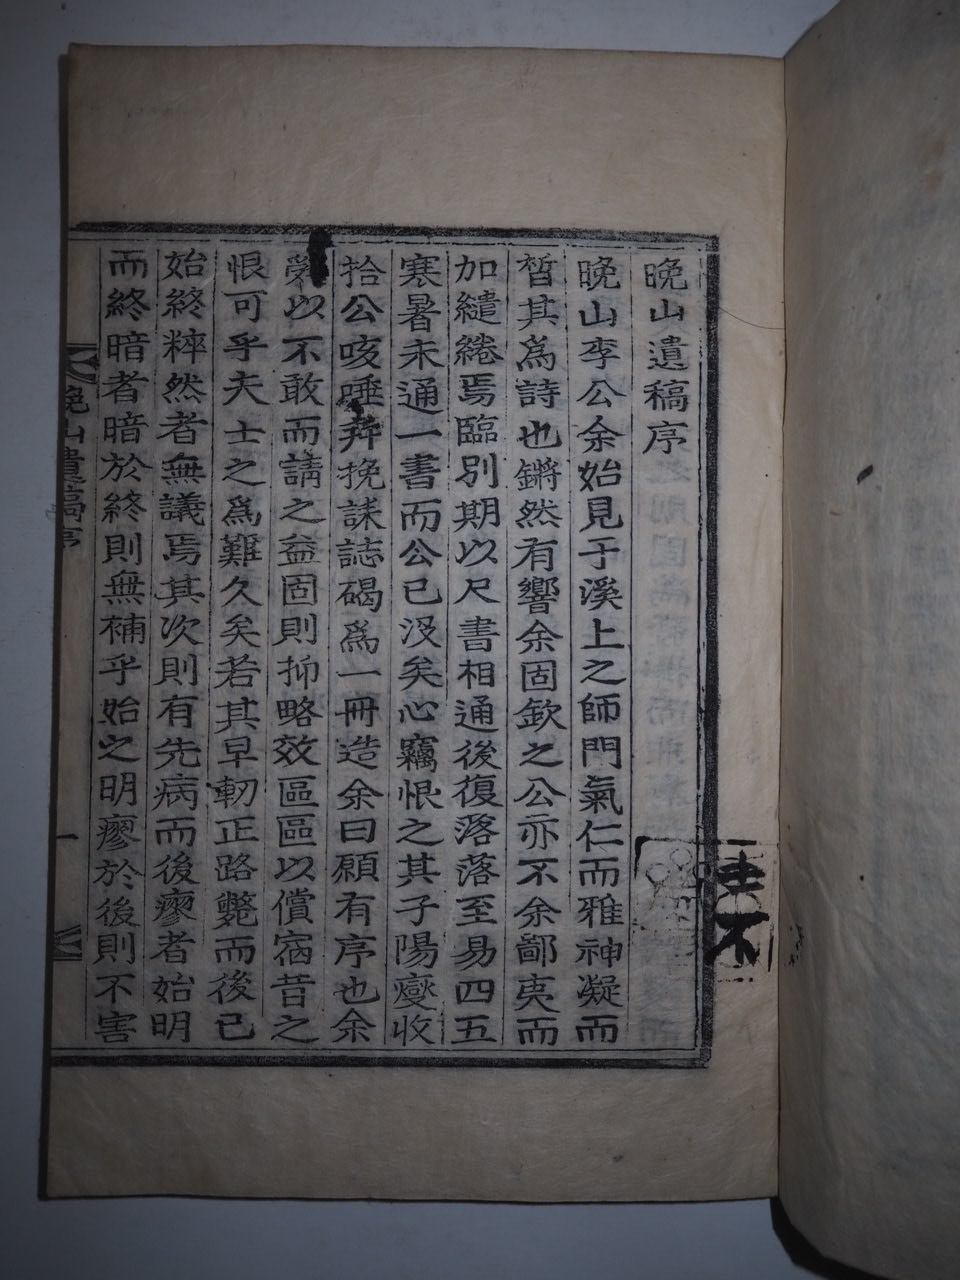 晩山遺稿序
晩山李公余始見于溪上之師門氣仁而雅神凝而
晳其爲詩也鏘然有響余固欽之公亦不余鄙夷而
加繾綣焉臨別期以尺書相通後復落落至易四五
寒暑未通一書而公已沒矣心竊恨之其子陽燮收
拾公咳唾幷挽誄誌碣爲一冊造余曰願有序也余
以不敢而請之益固則抑略效區區以償宿昔之
恨可乎夫士之爲難久矣若其早軔正路斃而後已
始終粹然者無議焉其次則有先病而後瘳者始明
而終暗者暗於終則無補乎始之明瘳於後則不害
晩山遺稿序
一